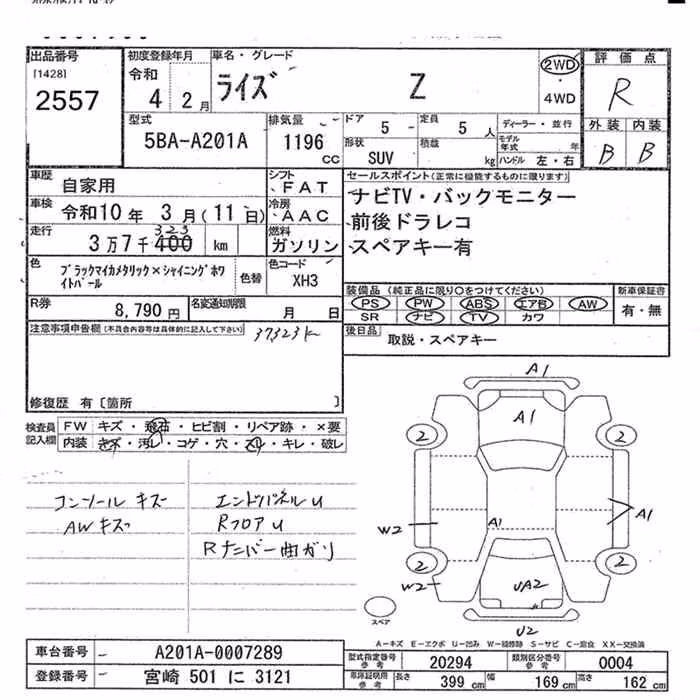 出品番号
[1428]
2557
初度登録年月
令和
4 2月
車名・グレード
ライズ Z
2WD
・
4WD
評価点
R
外装 内装
B B
型式
5BA-A201A
排気量
1196
cc
ドア 5 -
定員 5 人
形状 SUV
積載 kg
ディーラー・並行
モデル年式 年
ハンドル 左・右
車歴 自家用
シフト FAT
車検 令和10年 3月(11日)
冷房 AAC
走行 3万7千400 km
323
燃料 ガソリン
色 ブラックマイカメタリック×シャイニングホワイトパール
色替
色コード XH3
R券 8,790円
名変通知期限 月 日
セールスポイント(正常に機能するものに限ります)
ナビTV・バックモニター
前後ドラレコ
スペアキー有
装備品 (純正品に限り○をつけてください)
PS PW ABS エアB AW
SR ナビ TV カワ
新車保証書
有・無
後日品 取説・スペアキー
注意事項申告欄(不具合内容等は具体的に記入して下さい)
37323k
修復歴 有〔箇所 〕
検査員記入欄
FW キズ・飛石・ヒビ割・リペア跡・×要
内装 キズ・汚レ・コゲ・穴・スレ・キレ・破レ
コンソールキズ
AWキズ
エンドパネルU
RフロアU
Rナンバー曲ガリ
A1
A1
2 2
A1
A1
W2
2 2
W2
UA2
U2
スペア
A-キズ E-エクボ U-凹み W-補修跡 S-サビ C-腐食 XX-交換済
車台番号 A201A-0007289
登録番号 宮崎 501 に 3121
型式指定番号 参考 20294
類別区分番号 参考 0004
車庫証明所参考 長さ 399 cm 幅 169 cm 高さ 162 cm